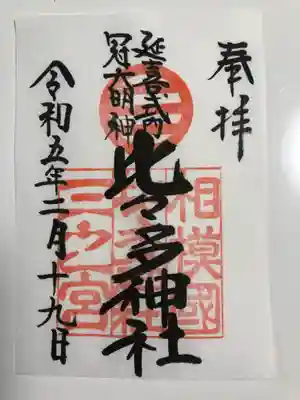 奉拝
延喜式内
冠大明神
比々多神社
令和五年二月十九日
相模國
三之宮